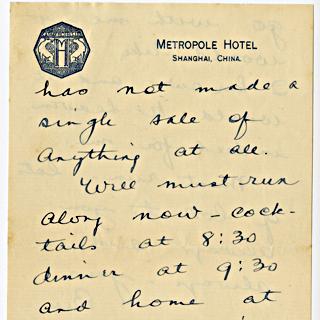 METROPOLE HOTEL
SHANGHAI, CHINA.
has not made a
single sale of
anything at all.
Well must run
along now - cock-
tails at 8:30
dinner at 9:30
and home at